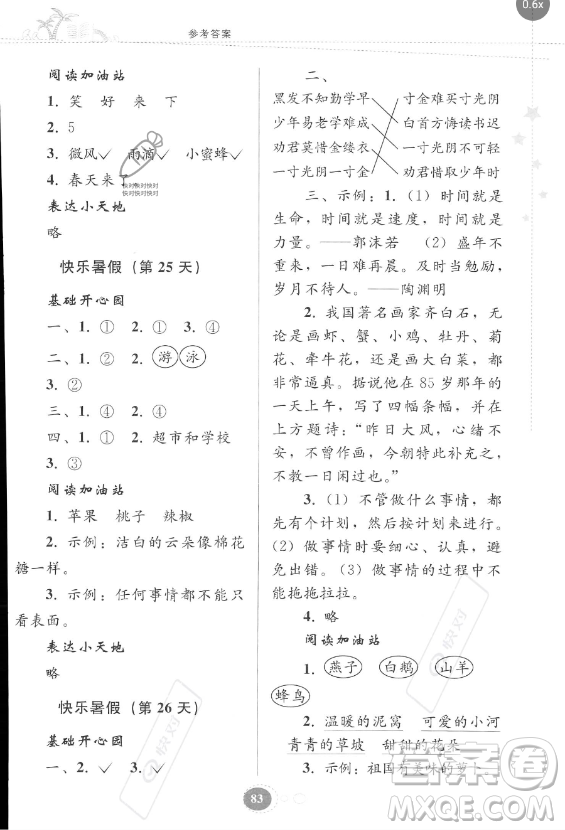 0.6x
参考答案
阅读加油站
1. 笑 好 来 下
2. 5
3. 微风✓ 雨滴✓ 小蜜蜂✓
4. 春天来
快对快对快对快对
快对快对快对快对
表达小天地
略
快乐暑假（第 25 天）
基础开心园
一、1. ① 2. ① 3. ④
二、1. ② 2. 游 泳
3. ②
三、1. ④ 2. ④
四、1. ① 2. 超市和学校
3. ③
阅读加油站
1. 苹果 桃子 辣椒
2. 示例：洁白的云朵像棉花
糖一样。
3. 示例：任何事情都不能只
看表面。
表达小天地
略
快乐暑假（第 26 天）
基础开心园
一、2. ✓ 3. ✓
二、
黑发不知勤学早 寸金难买寸光阴
少年易老学难成 白首方悔读书迟
劝君莫惜金缕衣 一寸光阴不可轻
一寸光阴一寸金 劝君惜取少年时
三、示例：1.（1）时间就是
生命，时间就是速度，时间就是
力量。——郭沫若 （2）盛年不
重来，一日难再晨。及时当勉励，
岁月不待人。——陶渊明
2. 我国著名画家齐白石，无
论是画虾、蟹、小鸡、牡丹、菊
花、牵牛花，还是画大白菜，都
非常逼真。据说他在 85 岁那年的
一天上午，写了四幅条幅，并在
上方题诗：“昨日大风，心绪不
安，不曾作画，今朝特此补充之，
不教一日闲过也。”
3.（1）不管做什么事情，都
先有个计划，然后按计划来进行。
（2）做事情时要细心、认真，避
免出错。（3）做事情的过程中不
能拖拖拉拉。
4. 略
阅读加油站
1. 燕子 白鹅 山羊
蜂鸟
2. 温暖的泥窝 可爱的小河
青青的草坡 甜甜的花朵
3. 示例：祖国有美味的萝卜
83
快对
快对
答案卷
MXQE.COM